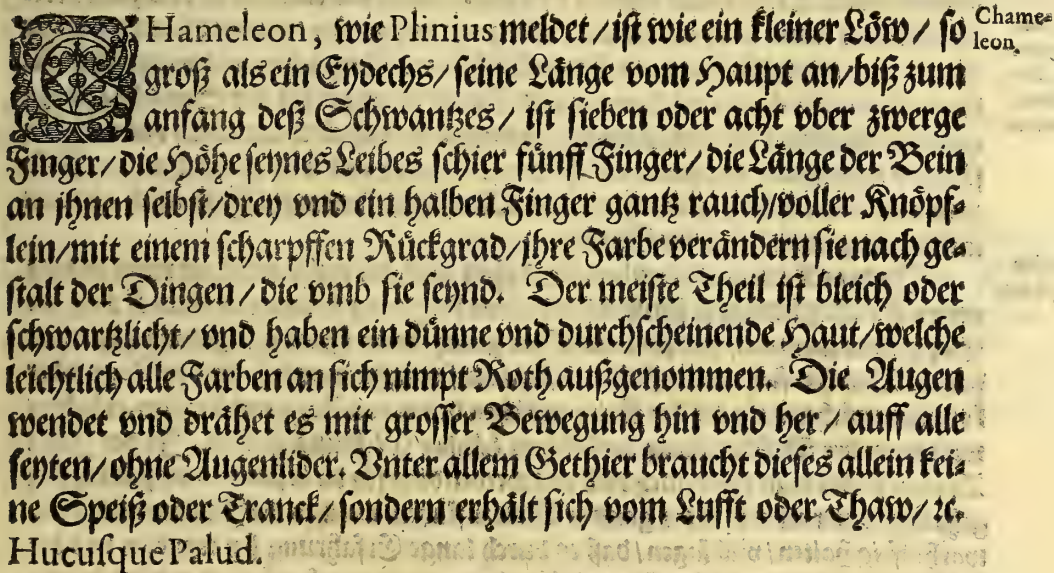 CHameleon, wie Plinius meldet / ist wie ein kleiner Löw / so
Chame-
leon.
groß als ein Eydechs / seine Länge vom Haupt an / biß zum
anfang deß Schwantzes / ist sieben oder acht vber zwerge
Finger / die Höhe seynes Leibes schier fünff Finger / die Länge der Bein
an jhnen selbst / drey vnd ein halben Finger gantz rauch / voller Knöpf-
lein / mit einem scharpffen Rückgrad / jhre Farbe verändern sie nach ge-
stalt der Dingen / die vmb sie seynd. Der meiste Theil ist bleich oder
schwartzlicht / vnd haben ein dünne vnd durchscheinende Haut / welche
leichtlich alle Farben an sich nimpt Roth außgenommen. Die Augen
wendet vnd drähet es mit grosser Bewegung hin vnd her / auff alle
seyten / ohne Augenlider. Vnter allem Gethier braucht dieses allein kei-
ne Speiß oder Tranck / sondern erhält sich vom Lufft oder Thaw / ꝛc.
Hucusque Palud.